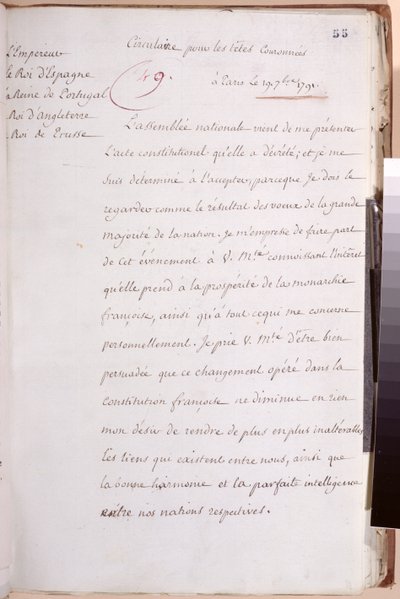 55
Circulaire pour les têtes Couronnées
L'Empereur
le Roi d'Espagne
la Reine de Portugal
Roi d'Angleterre
Roi de Prusse
49.
à Paris le 19. 7bre 1791.
L'assemblée nationale vient de me présenter
l'acte constitutionel qu'elle a décrété; et je me
suis determiné à l'accepter, parceque je dois le
regarder comme le résultat des voeux de la grande
majorité de la nation. Je m'empresse de faire part
de cet événement à V. Mté connoissant l'intérêt
qu'elle prend à la prospérité de la monarchie
françoise, ainsi qu'à tout cequi me concerne
personnellement. Je prie V. Mté d'être bien
persuadée que ce changement opéré dans la
constitution françoise ne diminue en rien
mon désir de rendre de plus en plus inaltérables
les liens qui existent entre nous, ainsi que
la bonne harmonie et la parfaite intelligence
entre nos nations respectives.